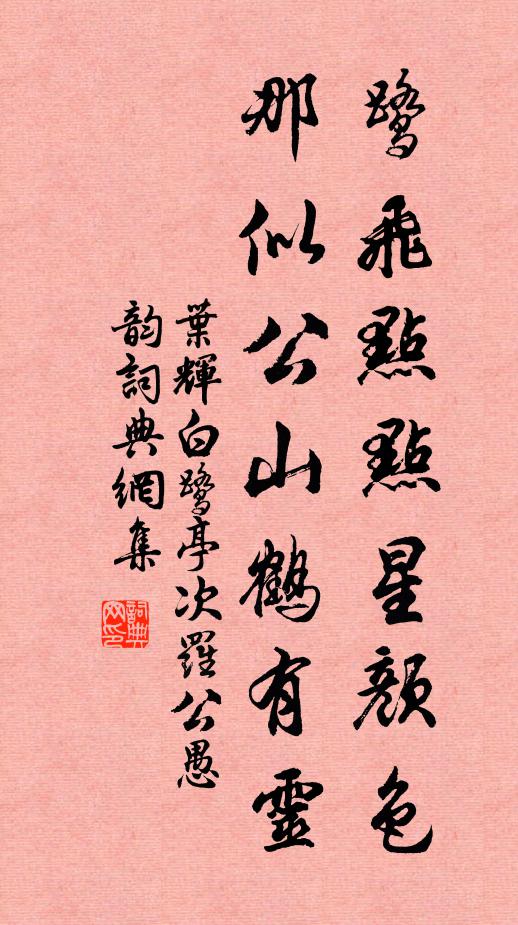 鹭飛點點星顏色
那似公山鶴有靈
葉輝白鹭亭次羅公愚
韵詞典網集
詞典网印